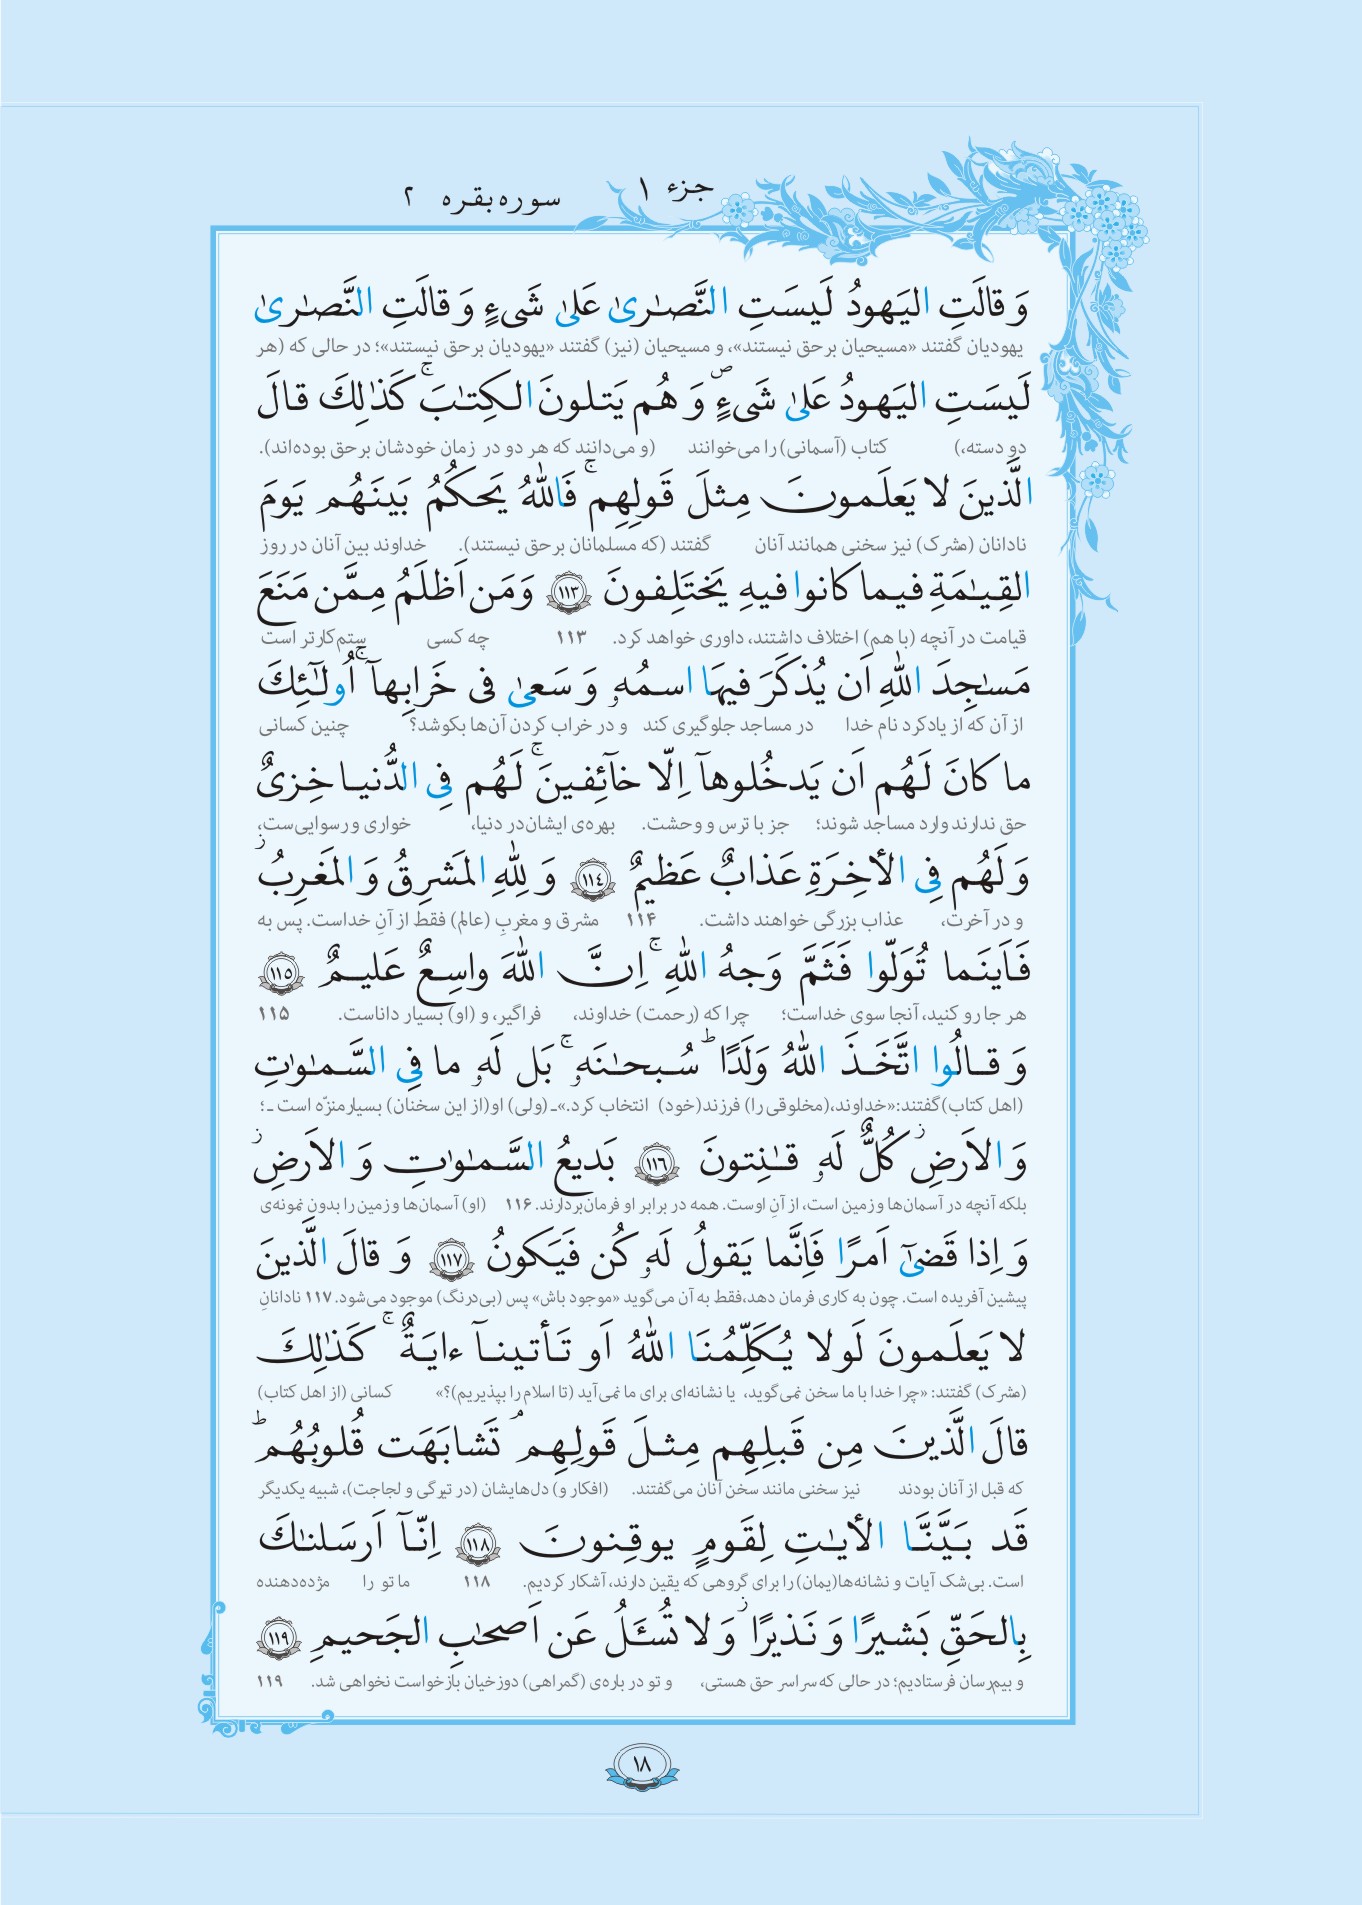 جزء ۱
سوره بقره ۲
وَ قالَتِ الیَهودُ لَیسَتِ النَّصـٰریٰ عَلیٰ شَیءٍ وَ قالَتِ النَّصـٰریٰ
یهودیان گفتند «مسیحیان برحق نیستند»، و مسیحیان (نیز) گفتند «یهودیان برحق نیستند»؛ در حالی که (هر
لَیسَتِ الیَهودُ عَلیٰ شَیءٍ ۖ وَ هُم یَتلونَ الکِتـٰبَ ۚ کَذٰلِكَ قالَ
دو دسته،) کتاب (آسمانی) را می‌خوانند (و می‌دانند که هر دو در زمان خودشان برحق بوده‌اند).
الَّذینَ لا یَعلَمونَ مِثلَ قَولِهِم ۚ فَاللّٰهُ یَحکُمُ بَینَهُم یَومَ
نادانان (مشرک) نیز سخنی همانند آنان گفتند (که مسلمانان برحق نیستند). خداوند بین آنان در روز
القِیـٰمَةِ فیما کانوا فیهِ یَختَلِفونَ ﴿۱۱۳﴾ وَ مَن اَظلَمُ مِمَّن مَنَعَ
قیامت در آنچه (با هم) اختلاف داشتند، داوری خواهد کرد. ۱۱۳ چه کسی ستم‌کارتر است
مَسـٰجِدَ اللّٰهِ اَن یُذکَرَ فیهَا اسمُهٗ وَ سَعیٰ فی خَرابِهآ ۚ اُولـٰٓئِكَ
از آن که از یادکرد نام خدا در مساجد جلوگیری کند و در خراب کردن آن‌ها بکوشد؟ چنین کسانی
ما کانَ لَهُم اَن یَدخُلوهآ اِلّا خآئِفینَ ۚ لَهُم فِی الدُّنیا خِزیٌ
حق ندارند وارد مساجد شوند؛ جز با ترس و وحشت. بهره‌ی ایشان در دنیا، خواری و رسوایی‌ست،
وَ لَهُم فِی الأخِرَةِ عَذابٌ عَظیمٌ ﴿۱۱٤﴾ وَ لِلّٰهِ المَشرِقُ وَ المَغرِبُ ز
و در آخرت، عذاب بزرگی خواهند داشت. ۱۱۴ مشرق و مغربِ (عالم) فقط از آنِ خداست. پس به
فَاَینَما تُوَلّوا فَثَمَّ وَجهُ اللّٰهِ ۚ اِنَّ اللّٰهَ واسِعٌ عَلیمٌ ﴿۱۱٥﴾
هر جا رو کنید، آنجا سوی خداست؛ چرا که (رحمت) خداوند، فراگیر، و (او) بسیار داناست. ۱۱۵
وَ قالُوا اتَّخَذَ اللّٰهُ وَلَدًا ط سُبحـٰنَهٗ ۚ بَل لَهٗ ما فِی السَّمـٰوٰتِ
(اهل کتاب) گفتند: «خداوند، (مخلوقی را) فرزند (خود) انتخاب کرد.» ـ (ولی) او (از این سخنان) بسیار منزّه است ـ؛
وَ الاَرضِ ز کُلٌّ لَهٗ قـٰنِتونَ ﴿۱۱٦﴾ بَدیعُ السَّمـٰوٰتِ وَ الاَرضِ ز
بلکه آنچه در آسمان‌ها و زمین است، از آنِ اوست. همه در برابر او فرمان‌بردارند. ۱۱۶ (او) آسمان‌ها و زمین را بدون نمونه‌ی
وَ اِذا قَضیٰٓ اَمرًا فَاِنَّما یَقولُ لَهٗ کُن فَیَکونُ ﴿۱۱۷﴾ وَ قالَ الَّذینَ
پیشین آفریده است. چون به کاری فرمان دهد، فقط به آن می‌گوید «موجود باش» پس (بی‌درنگ) موجود می‌شود. ۱۱۷ نادانانِ
لا یَعلَمونَ لَولا یُکَلِّمُنَا اللّٰهُ اَو تَأتینآ ءایَةٌ ۚ کَذٰلِكَ
(مشرک) گفتند: «چرا خدا با ما سخن نمی‌گوید، یا نشانه‌ای برای ما نمی‌آید (تا اسلام را بپذیریم)؟» کسانی (از اهل کتاب)
قالَ الَّذینَ مِن قَبلِهِم مِثلَ قَولِهِم ۘ تَشابَهَت قُلوبُهُم ط
که قبل از آنان بودند نیز سخنی مانند سخن آنان می‌گفتند. (افکار و) دل‌هایشان (در تیرگی و لجاجت)، شبیه یکدیگر
قَد بَیَّنَّا الأیـٰتِ لِقَومٍ یوقِنونَ ﴿۱۱۸﴾ اِنّآ اَرسَلنـٰكَ
است. بی‌شک آیات و نشانه‌ها(یمان) را برای گروهی که یقین دارند، آشکار کردیم. ۱۱۸ ما تو را مژده‌دهنده
بِالحَقِّ بَشیرًا وَ نَذیرًا ز وَ لا تُسئَلُ عَن اَصحـٰبِ الجَحیمِ ﴿۱۱۹﴾
و بیم‌رسان فرستادیم؛ در حالی که سراسر حق هستی، و تو در باره‌ی (گمراهی) دوزخیان بازخواست نخواهی شد. ۱۱۹
۱۸